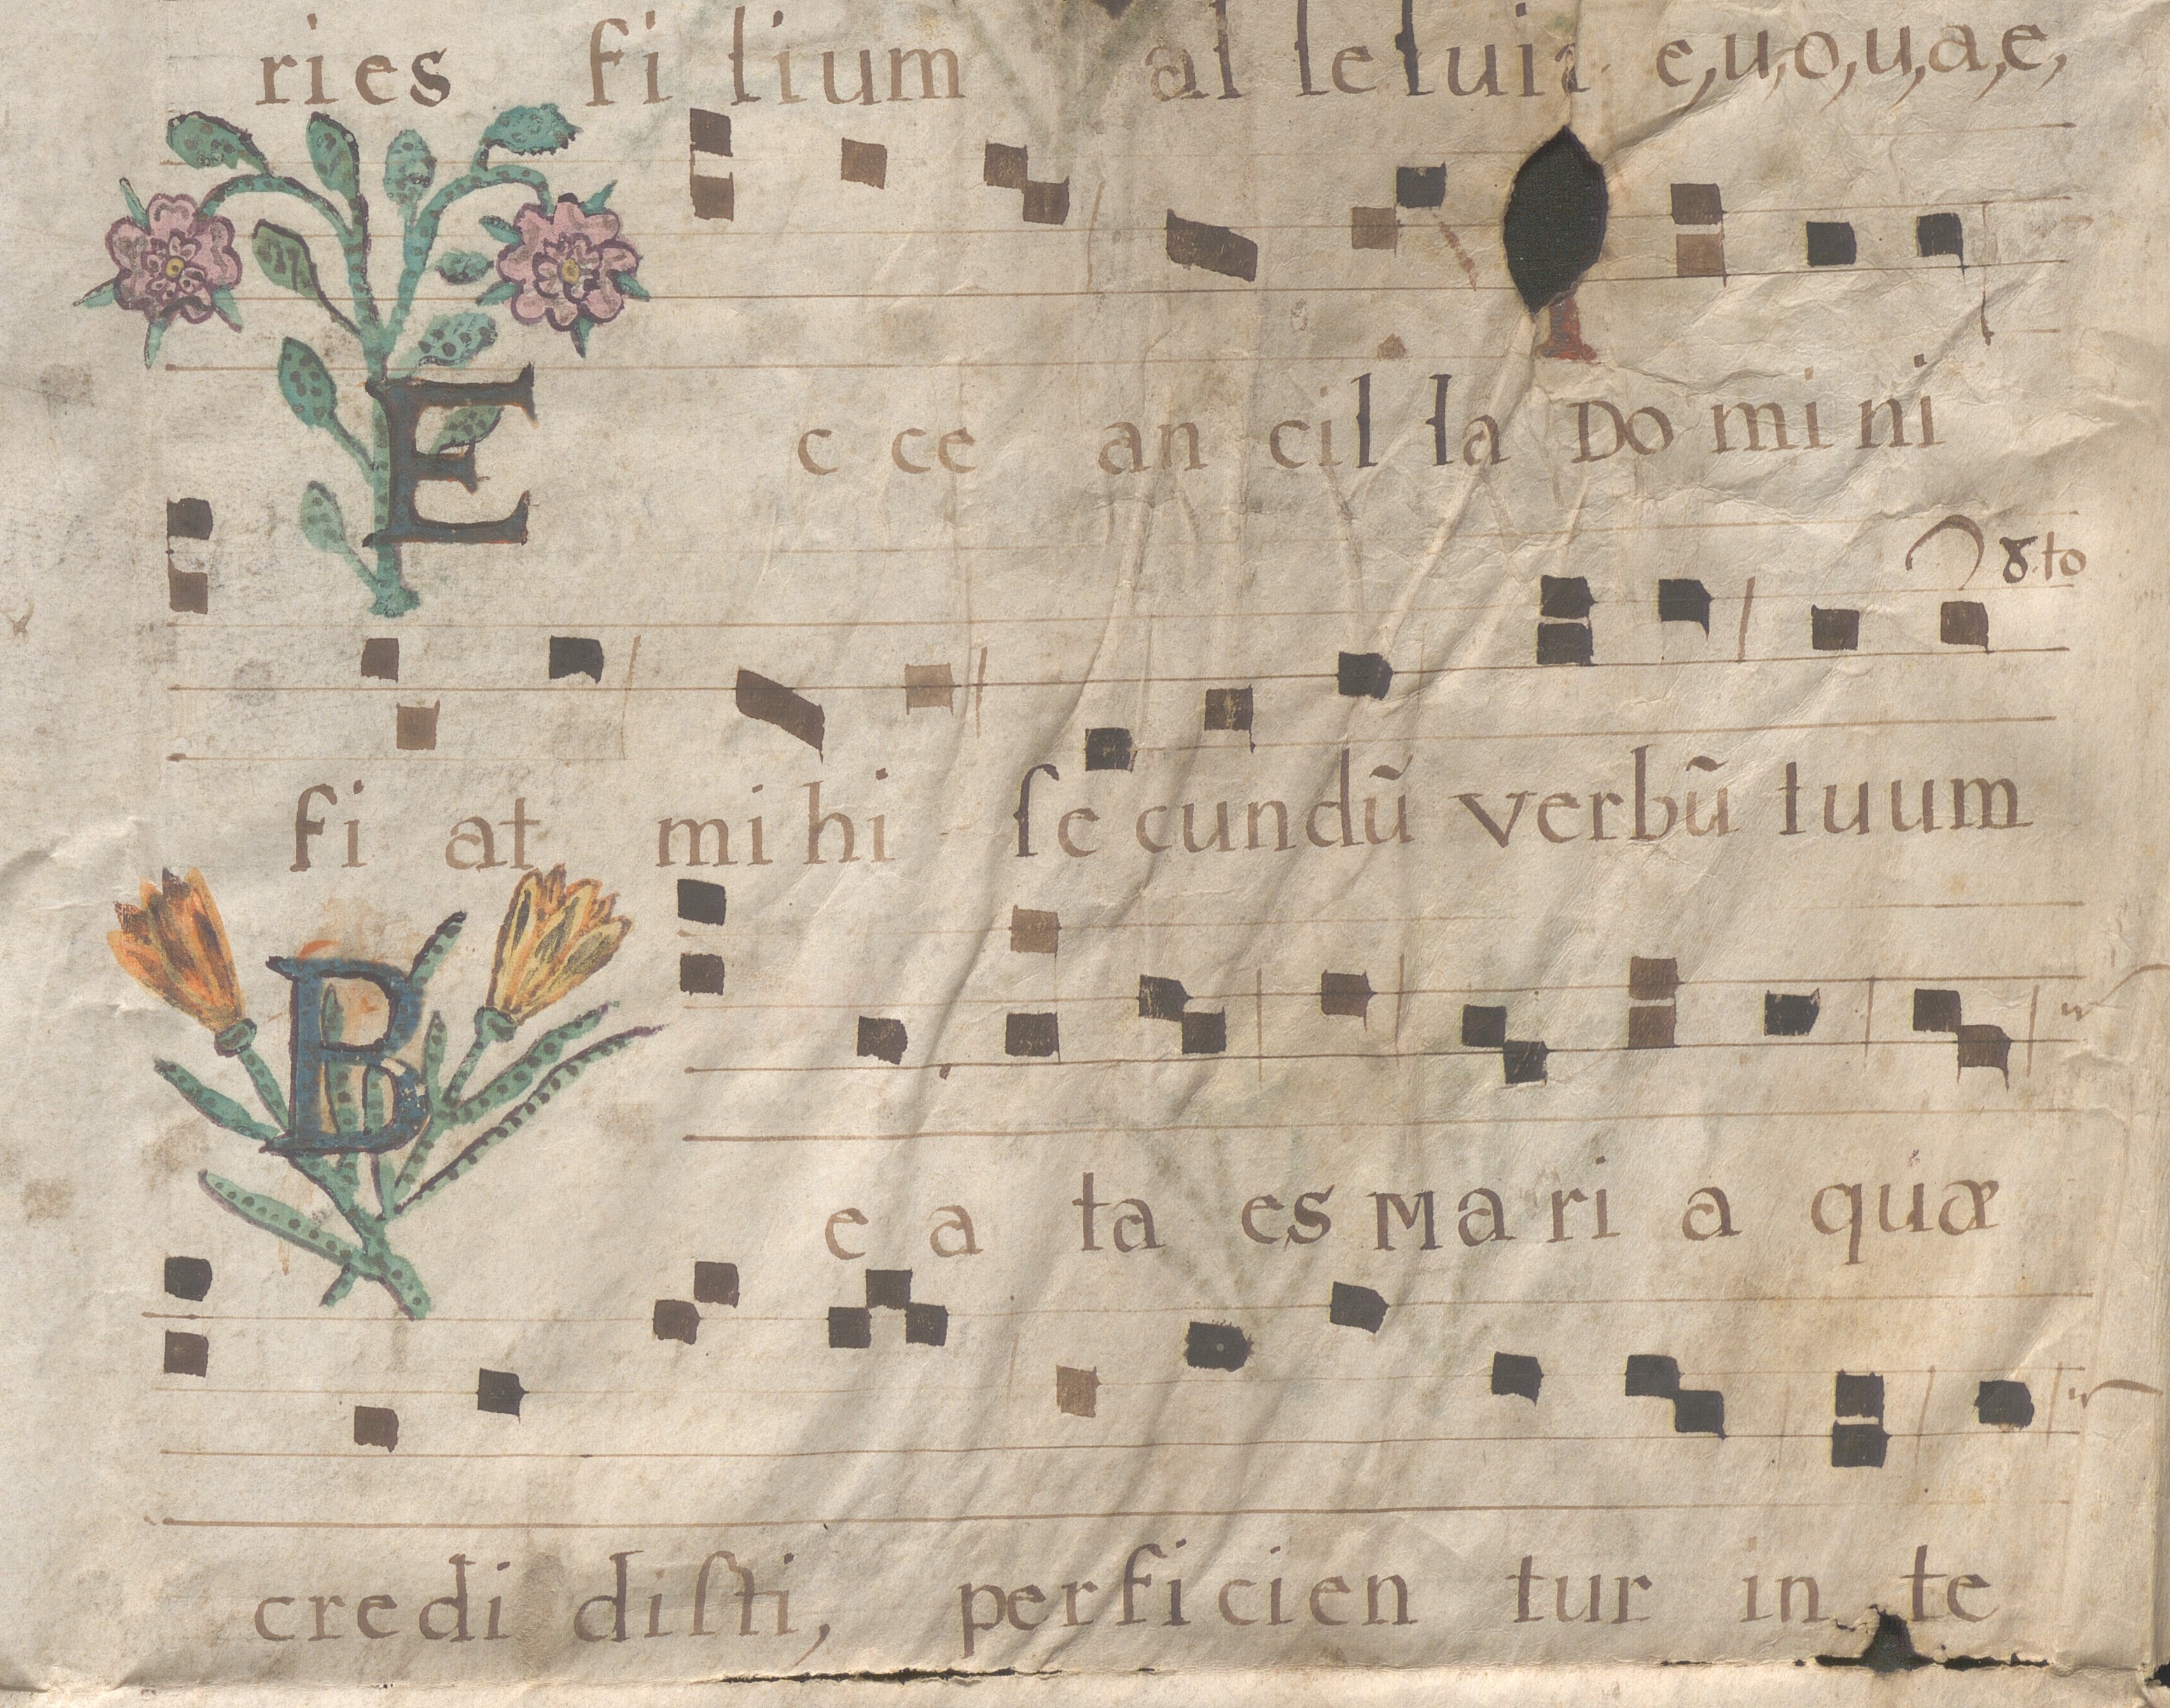 ries fi lium al le luia e,u,o,u,a,e,
E c ce an cil la Do mi ni
8.to
fi at mi hi ſe cundũ verbũ tuum
B e a ta es Ma ri a quæ
credi diſti, perficien tur in te